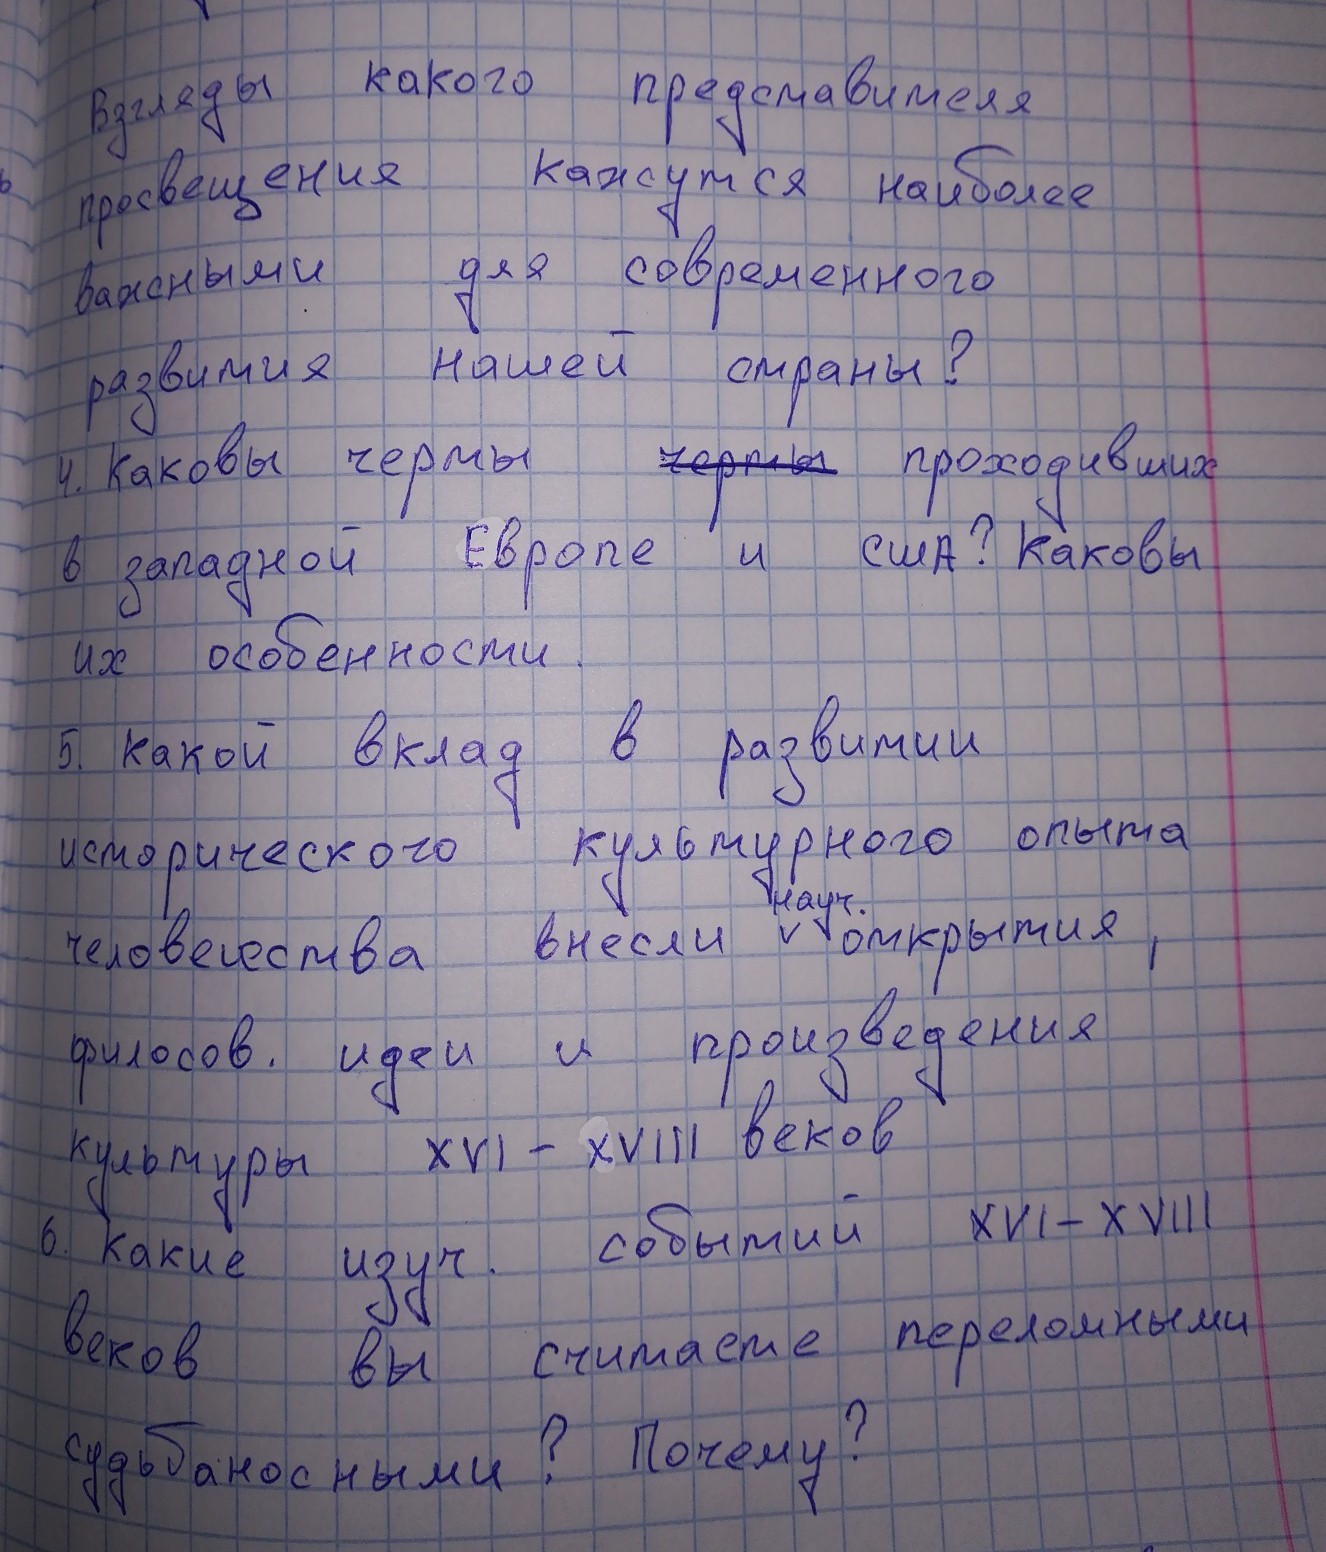 Взгляды какого представителя
просвещения кажутся наиболее
важными для современного
развития нашей страны?
4. Каковы черты черты проходивших
в западной Европе и США? Каковы
их особенности.
5. Какой вклад в развитии
исторического культурного опыта
человечества внесли науч. открытия,
филосов. идеи и произведения
культуры XVI - XVIII веков
6. Какие изуч. событий XVI - XVIII
веков вы считаете переломными
судьбаносными? Почему?